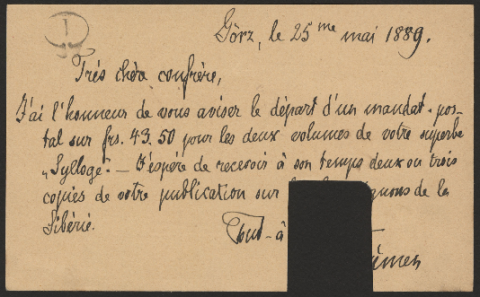 1
Görz, le 25me mai 1889.
Trés chèr confrère,
J'ai l'honneur de vous aviser le départ d'un mandat-pos-
tal sur frs. 43.50 pour les deux volumes de votre superbe
„Sylloge". — J'espére de recevoir à son temps deux ou trois
copies de votre publication sur de la
Sibérie.
Tout-à